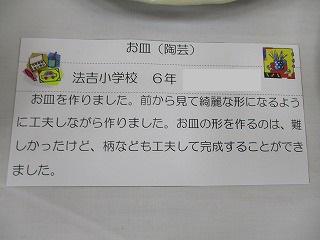 お皿（陶芸）
法吉小学校　６年
お皿を作りました。前から見て綺麗な形になるよう
に工夫しながら作りました。お皿の形を作るのは、難
しかったけど、柄なども工夫して完成することができ
ました。